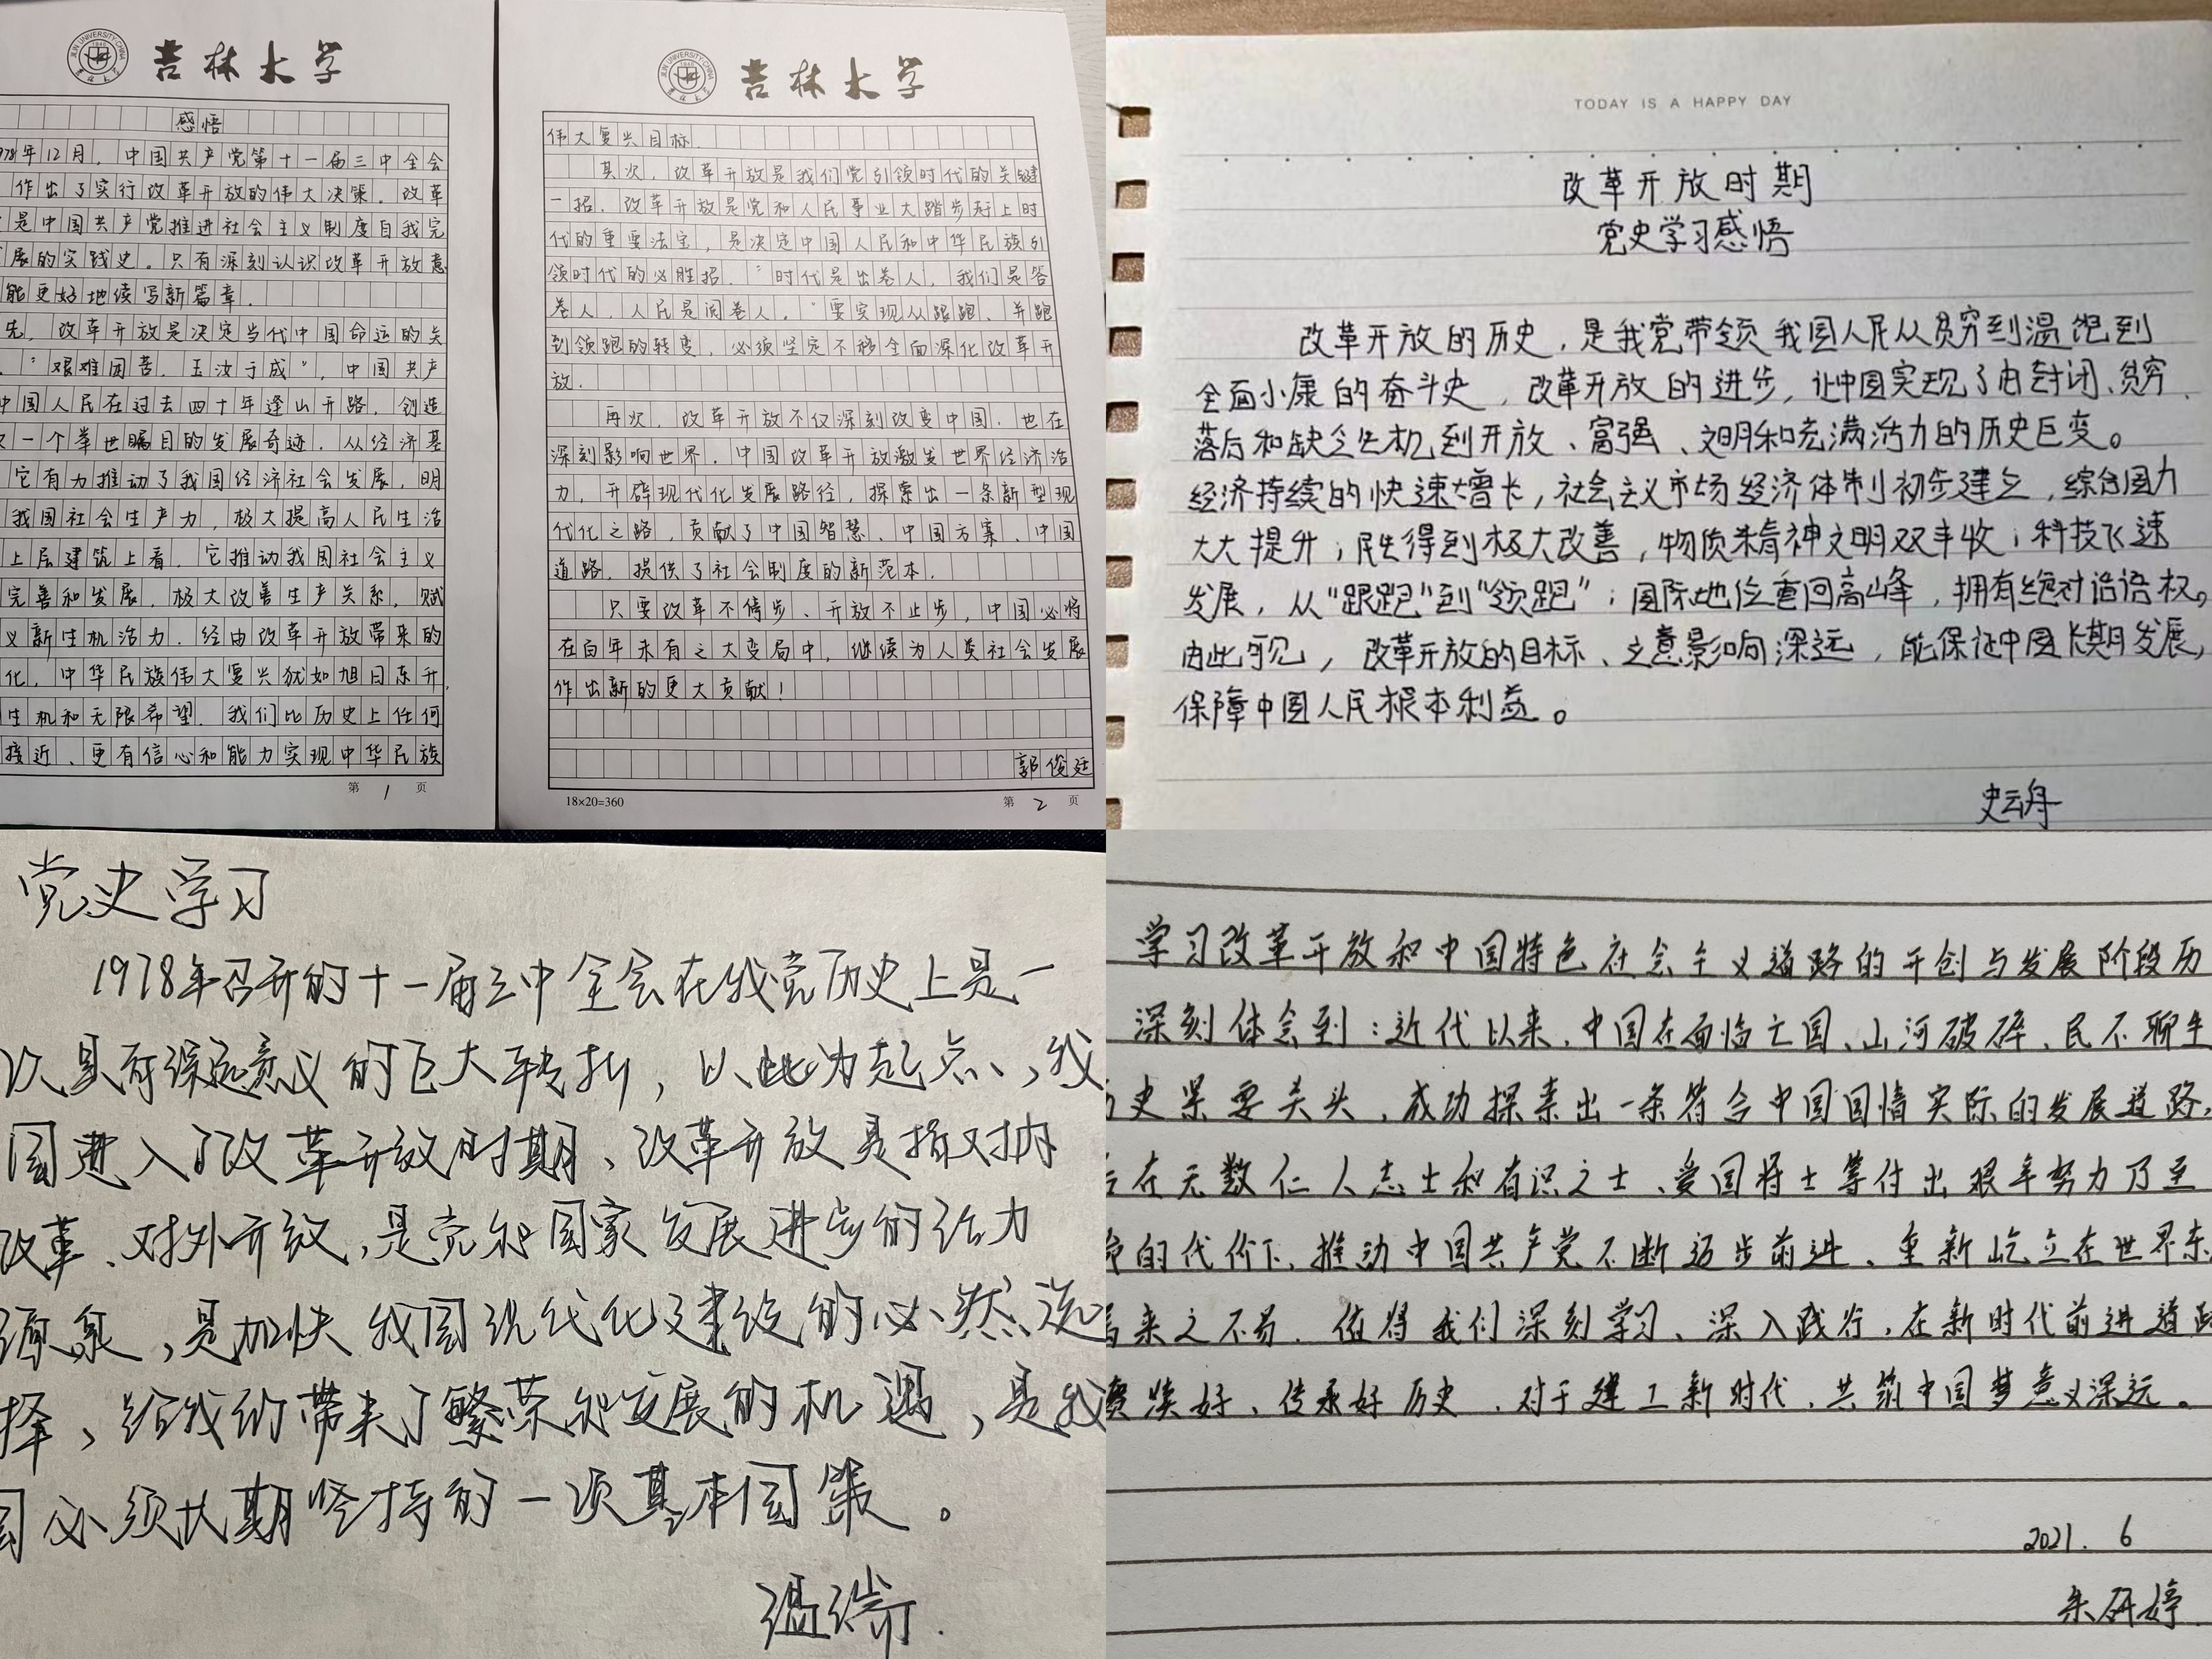 吉林大学
感悟
978年12月，中国共产党第十一届三中全会
作出了实行改革开放的伟大决策。改革
是中国共产党推进社会主义制度自我完
展的实践史。只有深刻认识改革开放意
能更好地续写新篇章。
先，改革开放是决定当代中国命运的关
。“艰难困苦，玉汝于成”，中国共产
中国人民在过去四十年逢山开路，创造
一个举世瞩目的发展奇迹。从经济基
它有力推动了我国经济社会发展，明
我国社会生产力，极大提高人民生活
上层建筑上看，它推动我国社会主义
完善和发展，极大改善生产关系，赋
义新生机活力。经由改革开放带来的
化，中华民族伟大复兴犹如旭日东升，
生机和无限希望。我们比历史上任何
接近、更有信心和能力实现中华民族
第1页
吉林大学
伟大复兴目标。
其次，改革开放是我们党引领时代的关键
一招。改革开放是党和人民事业大踏步赶上时
代的重要法宝，是决定中国人民和中华民族引
领时代的必胜招。“时代是出卷人，我们是答
卷人，人民是阅卷人。”要实现从跟跑、并跑
到领跑的转变，必须坚定不移全面深化改革开
放。
再次，改革开放不仅深刻改变中国，也在
深刻影响世界。中国改革开放激发世界经济活
力，开辟现代化发展路径，探索出一条新型现
代化之路，贡献了中国智慧、中国方案、中国
道路，提供了社会制度的新范本。
只要改革不停步、开放不止步，中国必将
在百年未有之大变局中，继续为人类社会发展
作出新的更大贡献！
郭俊廷
18×20=360
第2页
TODAY IS A HAPPY DAY
改革开放时期
党史学习感悟
改革开放的历史，是我党带领我国人民从贫穷到温饱到
全面小康的奋斗史，改革开放的进步，让中国实现了由封闭、贫穷、
落后和缺乏生机到开放、富强、文明和充满活力的历史巨变。
经济持续的快速增长，社会主义市场经济体制初步建立，综合国力
大大提升；民生得到极大改善，物质精神文明双丰收；科技飞速
发展，从“跟跑”到“领跑”；国际地位重回高峰，拥有绝对话语权。
由此可见，改革开放的目标、立意影响深远，能保证中国长期发展，
保障中国人民根本利益。
史云舟
党史学习
1978年召开的十一届三中全会在我党历史上是一
次具有深远意义的巨大转折，以此为起点，我
国进入了改革开放时期、改革开放是指对内
改革、对外开放，是党和国家发展进步的活力
源泉，是加快我国现代化建设的必然选
择，给我们带来了繁荣和发展的机遇，是我
国必须长期坚持的一项基本国策。
温瑞
学习改革开放和中国特色社会主义道路的开创与发展阶段历
深刻体会到：近代以来，中国在面临亡国、山河破碎、民不聊生
历史紧要关头，成功探索出一条符合中国国情实际的发展道路，
在无数仁人志士和有识之士、爱国将士等付出艰辛努力乃至
命的代价下，推动中国共产党不断迈步前进、重新屹立在世界东
来之不易，值得我们深刻学习、深入践行，在新时代前进道路
赓续好、传承好历史，对于建工新时代，共筑中国梦意义深远。
2021.6
朱研婷